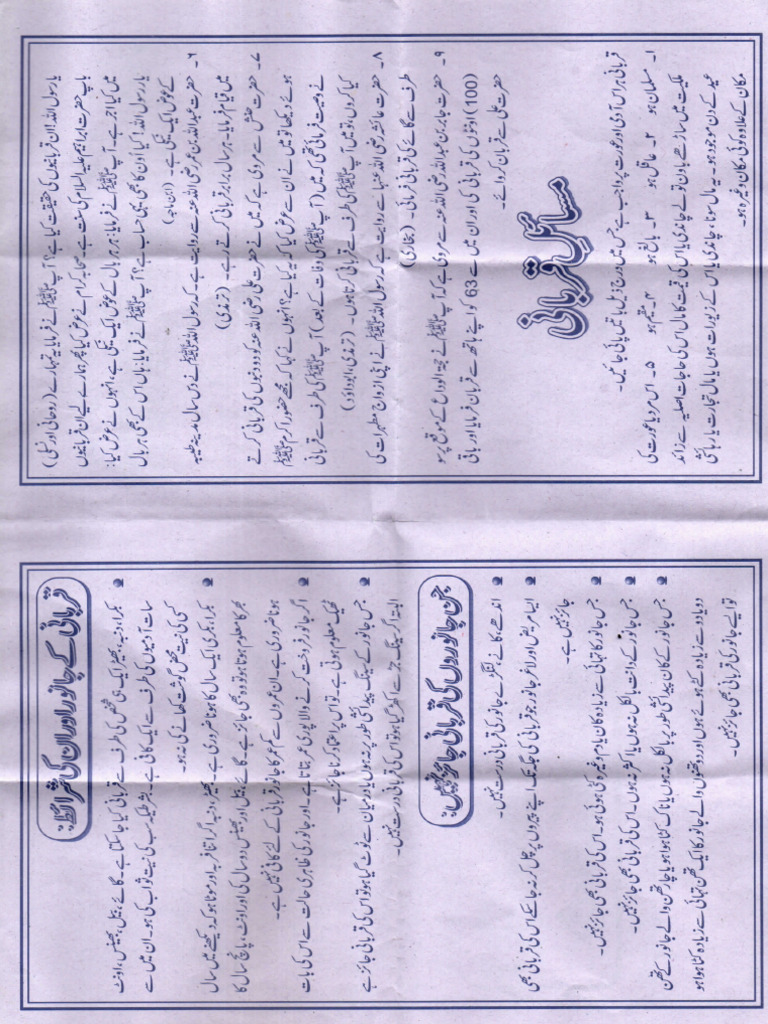 یا رسول اللہ! ان قربانیوں کی حقیقت کیا ہے؟ آپ ﷺ نے فرمایا یہ تمہارے (روحانی اور نسلی)
باپ حضرت ابراہیم علیہ السلام کی سنت ہے۔ صحابہ کرام نے عرض کیا پھر ہمارے لیے ان قربانیوں
میں کیا اجر ہے۔ آپ ﷺ نے فرمایا: ہر ہر بال کے عوض ایک نیکی ہے، انہوں نے عرض کیا:
یا رسول اللہ! کیا اون کا بھی یہی حساب ہے؟ آپ ﷺ نے فرمایا: ہاں اس کے بھی ہر بال
کے عوض ایک نیکی ہے۔ (ابن ماجہ)
۶۔ حضرت عبداللہ بن عمر رضی اللہ عنہ سے روایت ہے۔ کہ رسول اللہ ﷺ نے دس سال مدینہ طیبہ
میں قیام فرمایا۔ ہر سال برابر قربانی کرتے رہے۔ (ترمذی)
۷۔ حضرت حنش سے مروی ہے کہ میں نے حضرت علی رضی اللہ عنہ کو دو دنبوں کی قربانی کرتے
ہوئے دیکھا تو میں نے ان سے عرض کیا کہ یہ کیا ہے؟ انہوں نے کہا کہ مجھے حضور اکرم ﷺ
نے وصیت فرمائی تھی کہ میں (آپ ﷺ کی وفات کے بعد) آپ ﷺ کی طرف سے قربانی
کیا کروں تو میں آپ ﷺ کی طرف سے قربانی کرتا ہوں۔ (ترمذی، ابوداؤد)
۸۔ حضرت عائشہ رضی اللہ عنہا سے روایت ہے کہ رسول اللہ ﷺ نے اپنی ازواج مطہرات کی
طرف سے گائے کی قربانی فرمائی۔ (بخاری)
۹۔ حضرت جابر بن عبداللہ رضی اللہ عنہ سے مروی ہے کہ آپ ﷺ نے حجۃ الوداع کے موقع پر سو
(100) اونٹوں کی قربانی کی اور ان میں سے 63 کو اپنے ہاتھ سے قربان فرمایا اور باقی
حضرت علی سے قربان کروائے۔
مسائل قربانی
قربانی ہر اس آدمی اور عورت پر واجب ہے جس میں درج ذیل باتیں پائی جائیں۔
۱۔ مسلمان ہو ۲۔ عاقل ہو ۳۔ بالغ ہو ۴۔ مقیم ہو ۵۔ اس مرد یا عورت کی
ملکیت میں ساڑھے باون تولے چاندی یا اس کی قیمت کا مال اس کی حاجات اصلیہ سے زائد
عید کے دن موجود ہو۔ یہ مال سونا، چاندی یا اس کے زیورات ہوں یا مال تجارت یا رہائشی
مکان کے علاوہ کوئی مکان وغیرہ ہو۔
قربانی کے جانور اور ان کی شرائط:
بکرا، دنبہ، بھیڑ ایک ہی شخص کی طرف سے قربانی کیا جا سکتا ہے۔ گائے، بیل، بھینس، اونٹ
سات آدمیوں کی طرف سے ایک کافی ہے۔ بشرطیکہ سب کی نیت ثواب کی ہو۔ ان میں سے
کسی کی نیت محض گوشت کھانے کی نہ ہو۔
بکرا، بکری ایک سال کا ہونا ضروری ہے۔ بھیڑ، دنبہ اگر اتنا فربہ اور موٹا ہو کہ دیکھنے میں سال
بھر کا معلوم ہوتا ہو تو وہ بھی جائز ہے۔ گائے، بیل اور بھینس دو سال کی اور اونٹ، پانچ سال کا
ہونا ضروری ہے۔ ان عمروں سے کم عمر کا جانور قربانی کے لئے کافی نہیں ہے۔
اگر جانور فروخت کرنے والا پوری عمر بتاتا ہے۔ اور جانور کی ظاہری حالت سے اس کی بات
ٹھیک معلوم ہوتی ہے۔ تو اس پر اعتماد کرنا جائز ہے۔
جس جانور کے سینگ پیدائشی طور پر نہ ہوں یا درمیان سے ٹوٹ گیا ہو تو اس کی قربانی جائز ہے
البتہ اگر سینگ جڑ سے اکھڑ گیا ہو تو اس کی قربانی درست نہیں۔
جن جانوروں کی قربانی جائز نہیں:
اندھے، کانے، لنگڑے جانور کی قربانی درست نہیں۔
ایسا مریض اور لاغر جانور جو قربانی کی جگہ تک اپنے پیروں پر چل کر نہ جا سکے اس کی قربانی بھی
جائز نہیں ہے۔
جس جانور کا تہائی سے زیادہ کان یا دم وغیرہ کٹی ہوئی ہو۔ اس کی قربانی بھی جائز نہیں۔
جس جانور کے دانت بالکل نہ ہوں یا اکثر نہ ہوں۔ اس کی قربانی بھی جائز نہیں۔
جس جانور کے کان پیدائشی طور پر بالکل نہ ہوں یا ناک کٹا ہوا ہو یا چار تھن والے جانور کے تھن
دو یا دو سے زیادہ کٹے ہوئے ہوں اور دو تھنوں والے جانور کا ایک تھن تہائی سے زیادہ کٹا ہوا ہو
تو ایسے جانور کی قربانی بھی جائز نہیں۔